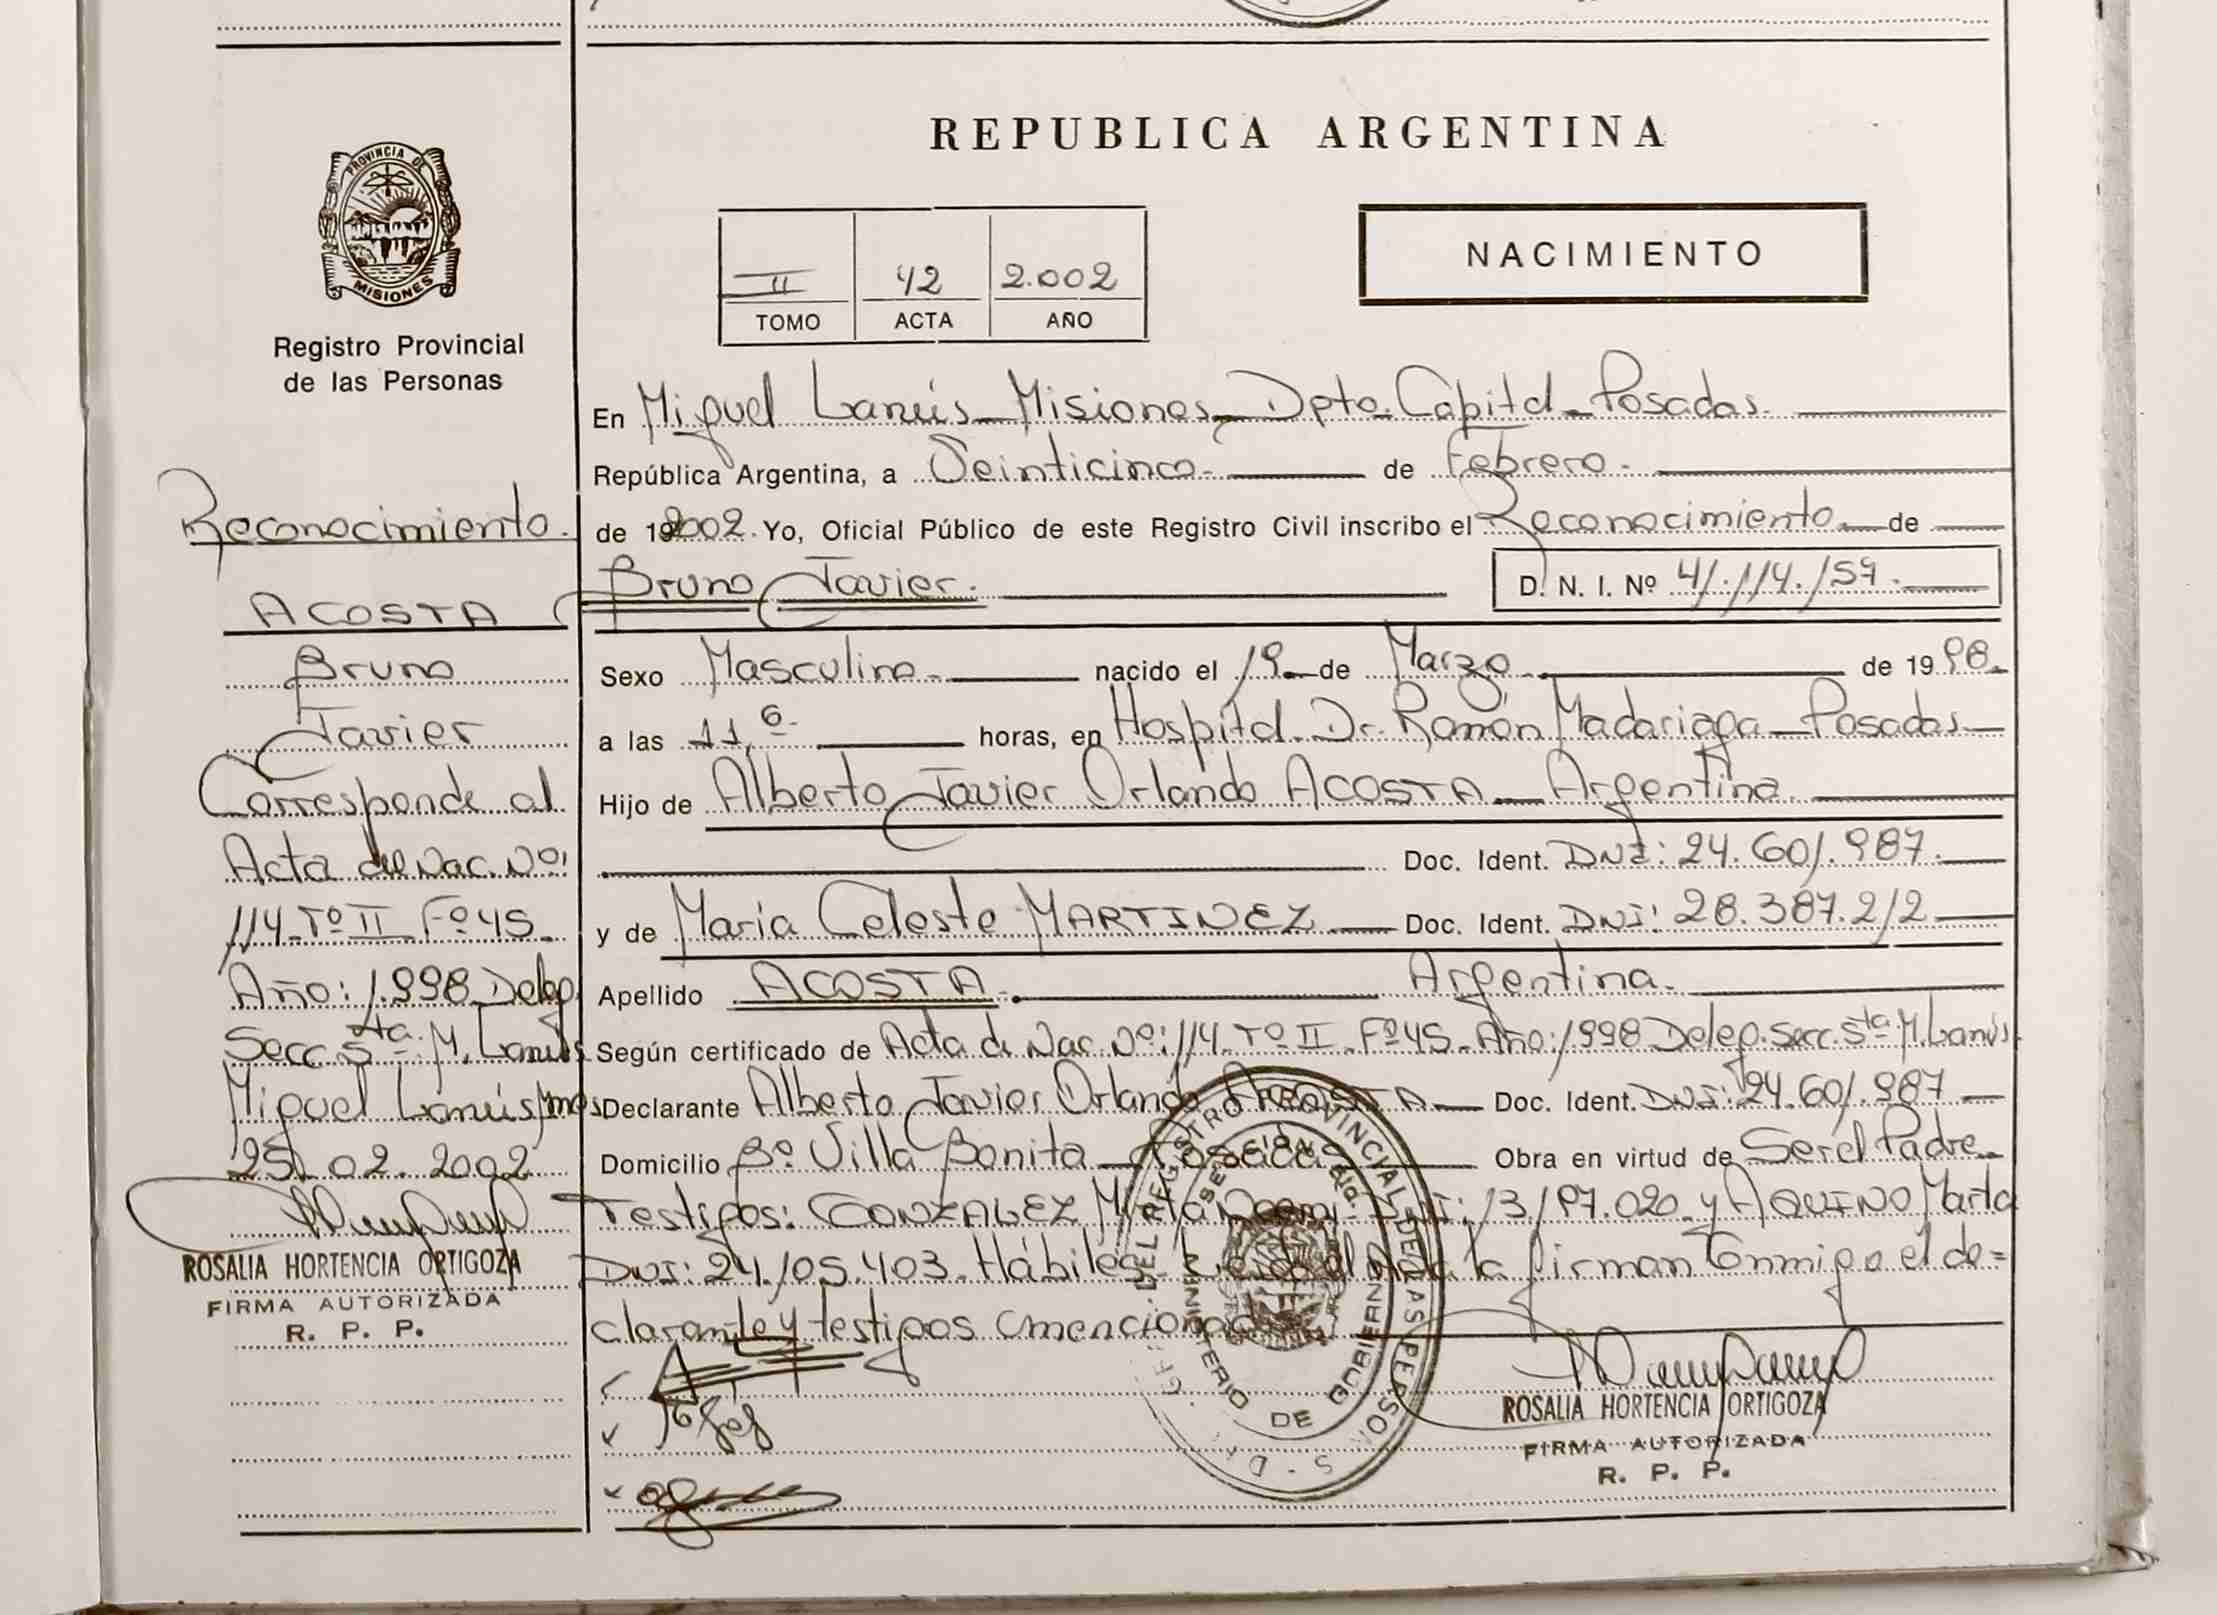 REPUBLICA ARGENTINA
PROVINCIA DE MISIONES
Registro Provincial
de las Personas
II 42 2.002
TOMO ACTA AÑO
NACIMIENTO
En Miguel Lanús - Misiones - Dpto. Capital - Posadas.
República Argentina, a Veinticinco. de Febrero.
de 2002. Yo, Oficial Público de este Registro Civil inscribo el Reconocimiento de
Bruno Javier. D. N. I. Nº 41.114.159.
Sexo Masculino. nacido el 19 de Marzo de 1998.
a las 11,6 horas, en Hospital Dr. Ramón Madariaga - Posadas
Hijo de Alberto Javier Orlando ACOSTA - Argentina.
Doc. Ident. DNI: 24.601.987.
y de María Celeste MARTINEZ Doc. Ident. DNI: 28.387.212
Apellido ACOSTA. Argentina.
Según certificado de Acta de Nac. Nº: 114 Tº II Fº 45 Año: 1998 Deleg. Secc. Sta. M. Lanús
Declarante Alberto Javier Orlando ACOSTA Doc. Ident. DNI: 24.601.987
Domicilio Bº Villa Bonita - Posadas Obra en virtud de Ser el Padre
Testigos: GONZALEZ DNI: 13.197.020 y AQUINO Marta
DNI: 24.105.403. Hábiles Leída el Acta la firman Conmigo el de=
clarante y testigos mencionad
ROSALIA HORTENCIA ORTIGOZA
FIRMA AUTORIZADA
R. P. P.
Reconocimiento.
ACOSTA
Bruno
Javier
Corresponde al
Acta de Nac. Nº:
114 Tº II Fº 45
Año: 1.998 Deleg.
Secc. Sta. M. Lanús
Miguel Lanús Mnes
25 02. 2002
ROSALIA HORTENCIA ORTIGOZA
FIRMA AUTORIZADA
R. P. P.
REGISTRO PROVINCIAL DE LAS PERSONAS
MINISTERIO DE GOBIERNO